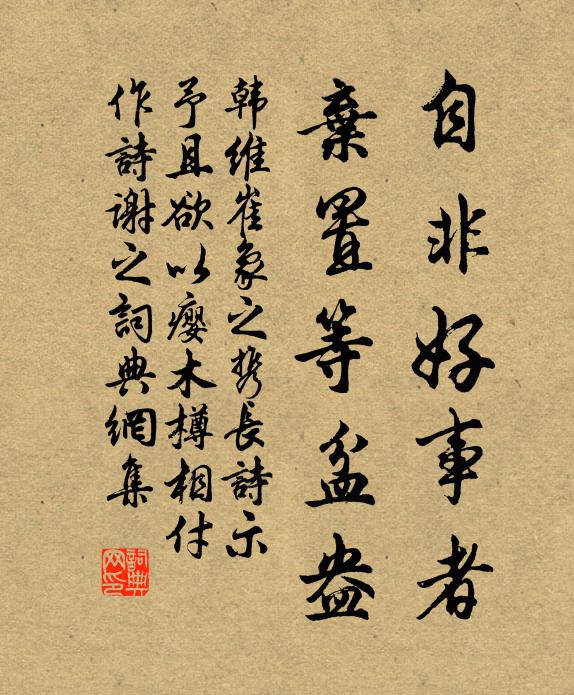 自非好事者
棄置等盆盎
韩维崔象之携長詩示
予且欲以癭木樽相付
作詩謝之詞典網集
詞典网印